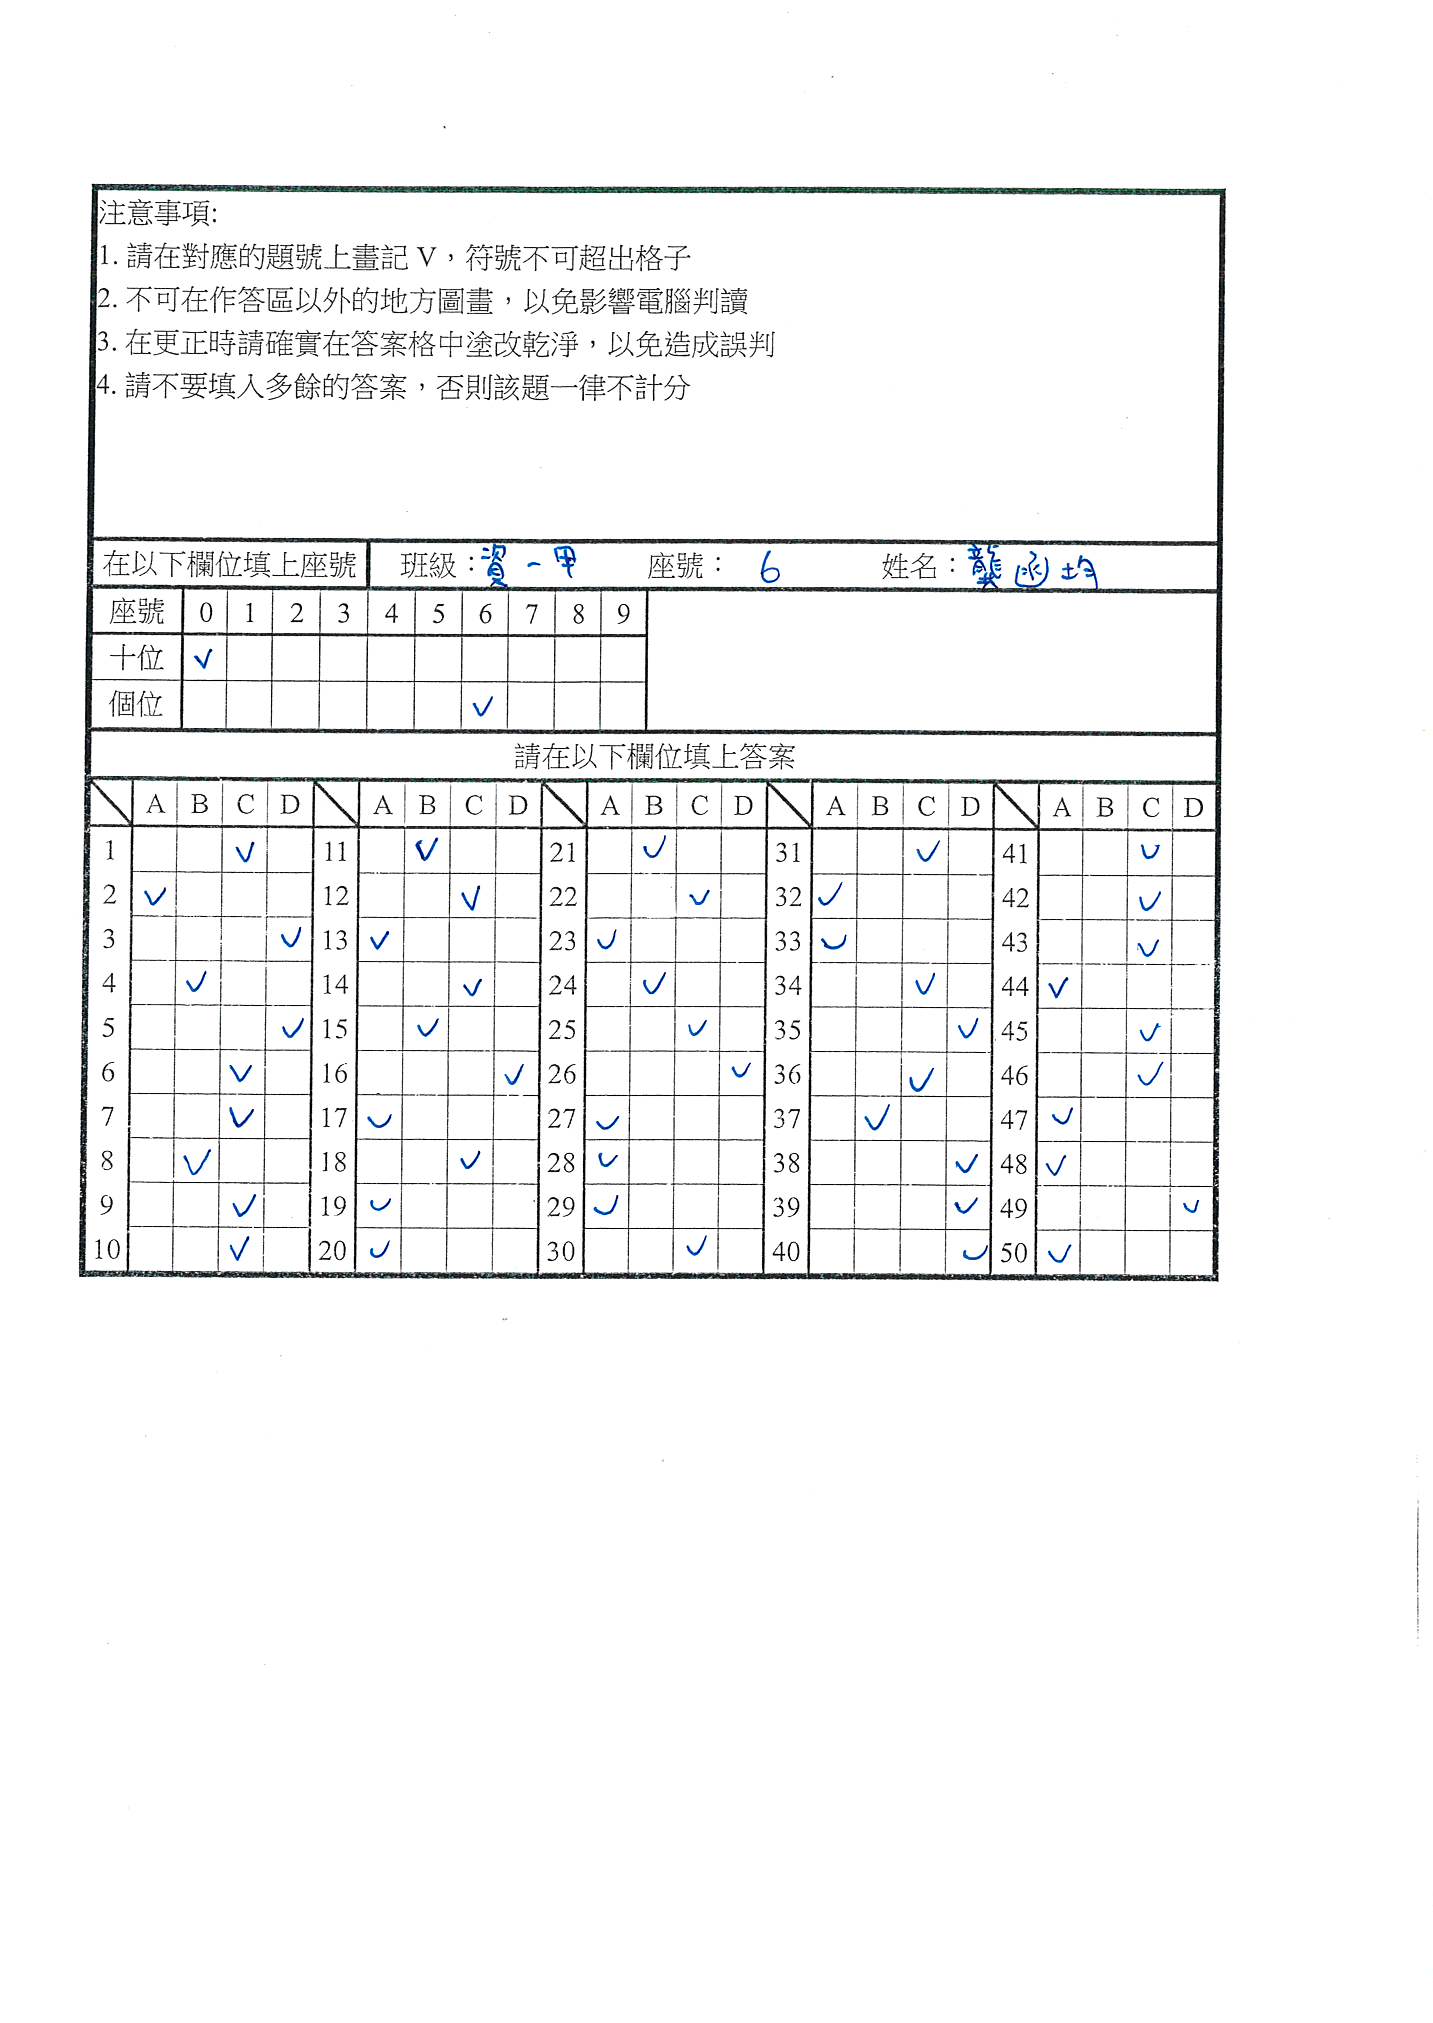 注意事項:
1. 請在對應的題號上畫記 V，符號不可超出格子
2. 不可在作答區以外的地方圖畫，以免影響電腦判讀
3. 在更正時請確實在答案格中塗改乾淨，以免造成誤判
4. 請不要填入多餘的答案，否則該題一律不計分
在以下欄位填上座號 班級：資一甲 座號： 6 姓名：龔函均
座號 0 1 2 3 4 5 6 7 8 9
十位 ✓
個位 ✓
請在以下欄位填上答案
A B C D A B C D A B C D A B C D A B C D
1 ✓ 11 ✓ 21 ✓ 31 ✓ 41 ✓
2 ✓ 12 ✓ 22 ✓ 32 ✓ 42 ✓
3 ✓ 13 ✓ 23 ✓ 33 ✓ 43 ✓
4 ✓ 14 ✓ 24 ✓ 34 ✓ 44 ✓
5 ✓ 15 ✓ 25 ✓ 35 ✓ 45 ✓
6 ✓ 16 ✓ 26 ✓ 36 ✓ 46 ✓
7 ✓ 17 ✓ 27 ✓ 37 ✓ 47 ✓
8 ✓ 18 ✓ 28 ✓ 38 ✓ 48 ✓
9 ✓ 19 ✓ 29 ✓ 39 ✓ 49 ✓
10 ✓ 20 ✓ 30 ✓ 40 ✓ 50 ✓